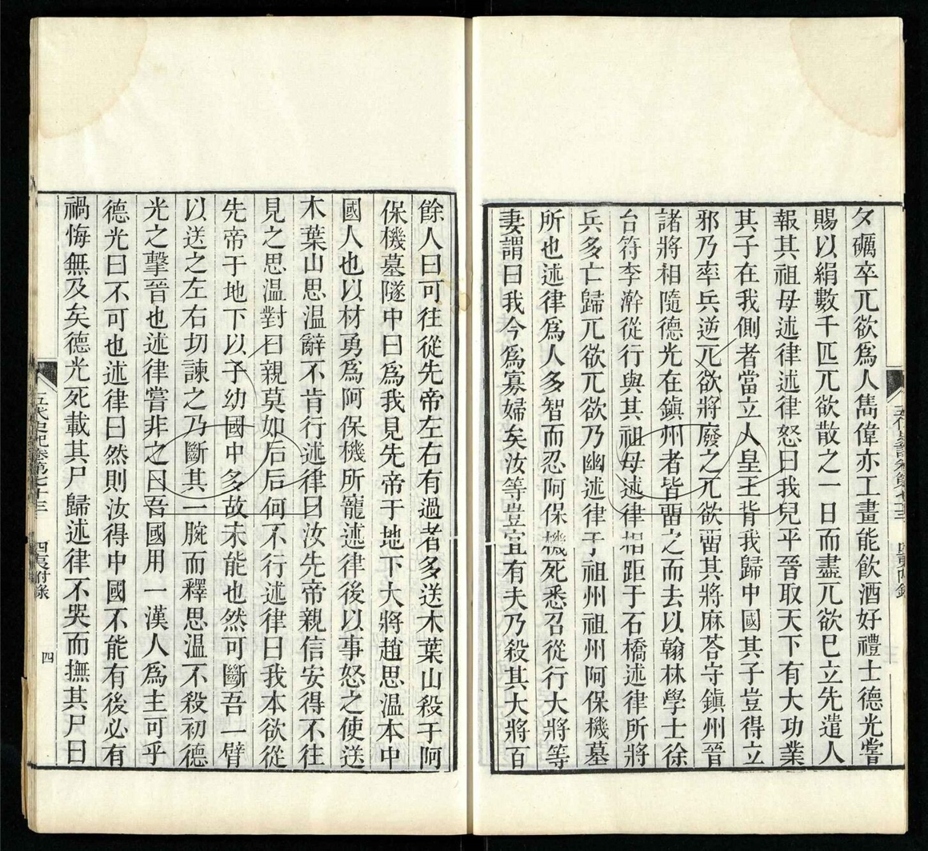 夂礪卒兀欲爲人雋偉亦工畫能飲酒好禮士德光嘗
賜以絹數千匹兀欲散之一日而盡兀欲巳立先遣人
報其祖母述律述律怒曰我兒平晉取天下有大功業
其子在我側者當立人皇王背我歸中國其子豈得立
邪乃率兵逆兀欲將廢之兀欲畱其將麻荅守鎮州晉
諸將相隨德光在鎮州者皆畱之而去以翰林學士徐
台符李澣從行與其祖母述律相距于石橋述律所將
兵多亡歸兀欲兀欲乃幽述律于祖州祖州阿保機墓
所也述律爲人多智而忍阿保機死悉召從行大將等
妻謂曰我今爲寡婦矣汝等豈宜有夫乃殺其大將百
五代史記卷第七十三 四夷附錄
餘人曰可往從先帝左右有過者多送木葉山殺于阿
保機墓隧中曰爲我見先帝于地下大將趙思溫本中
國人也以材勇爲阿保機所寵述律後以事怒之使送
木葉山思溫辭不肯行述律曰汝先帝親信安得不往
見之思溫對曰親莫如后后何不行述律曰我本欲從
先帝于地下以子幼國中多故未能也然可斷吾一臂
以送之左右切諫之乃斷其一腕而釋思溫不殺初德
光之擊晉也述律嘗非之曰吾國用一漢人爲主可乎
德光曰不可也述律曰然則汝得中國不能有後必有
禍悔無及矣德光死載其尸歸述律不哭而撫其尸曰
五代史記卷第七十三 四夷附錄 四